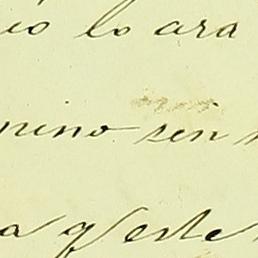 lo ara
nino sin
a q' este